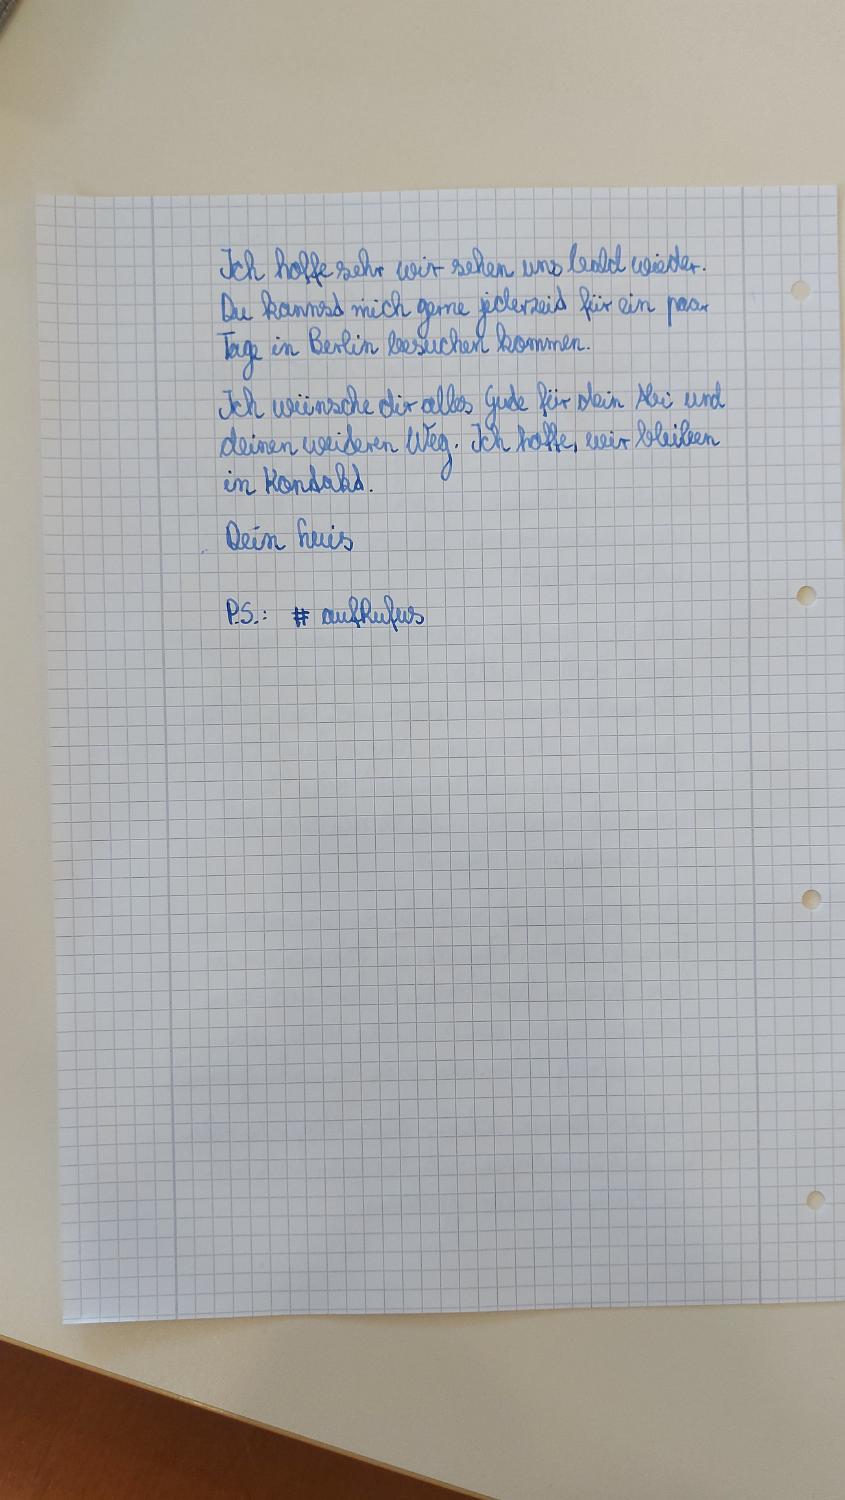 Ich hoffe sehr wir sehen uns bald wieder.
Du kannsd mich gerne jederzeid für ein paar
Tage in Berlin besuchen kommen.
Ich wünsche dir alles Gude für dein Abi und
deinen weideren Weg. Ich hoffe, wir bleiben
in Kondakd.
Dein Luis
P.S.: # aufRufus